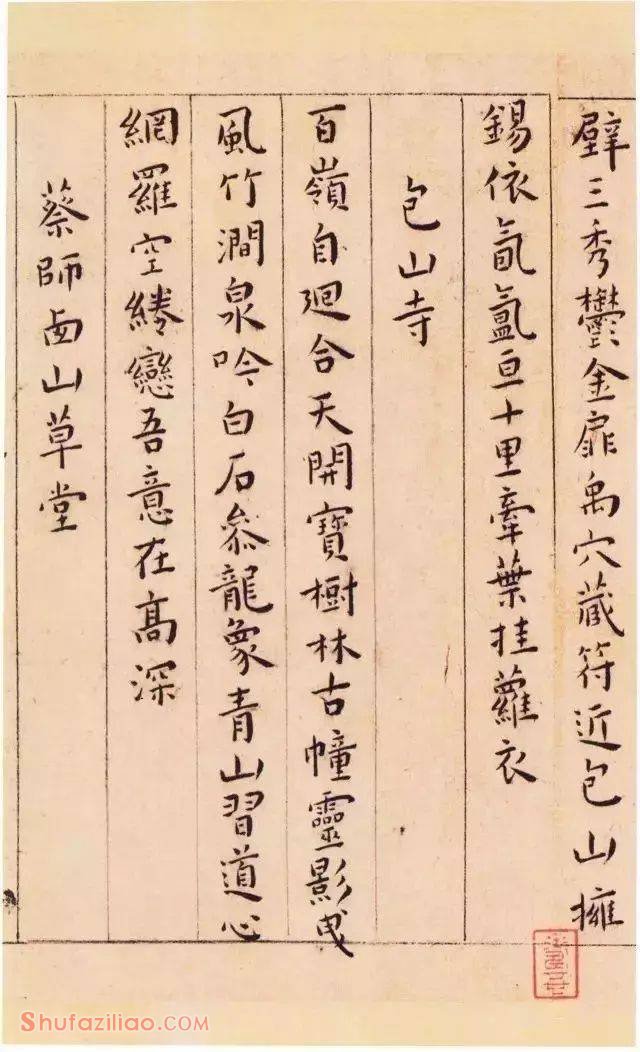 壁三秀鬱金扉禹穴藏符近包山擁
錫依氤氳亘十里牽葉挂蘿衣
包山寺
百嶺自迴合天開寶樹林古幢靈影曳
風竹澗泉吟白石叅龍象青山習道心
網羅空綣戀吾意在高深
蔡師西山草堂
Shufaziliao.COM